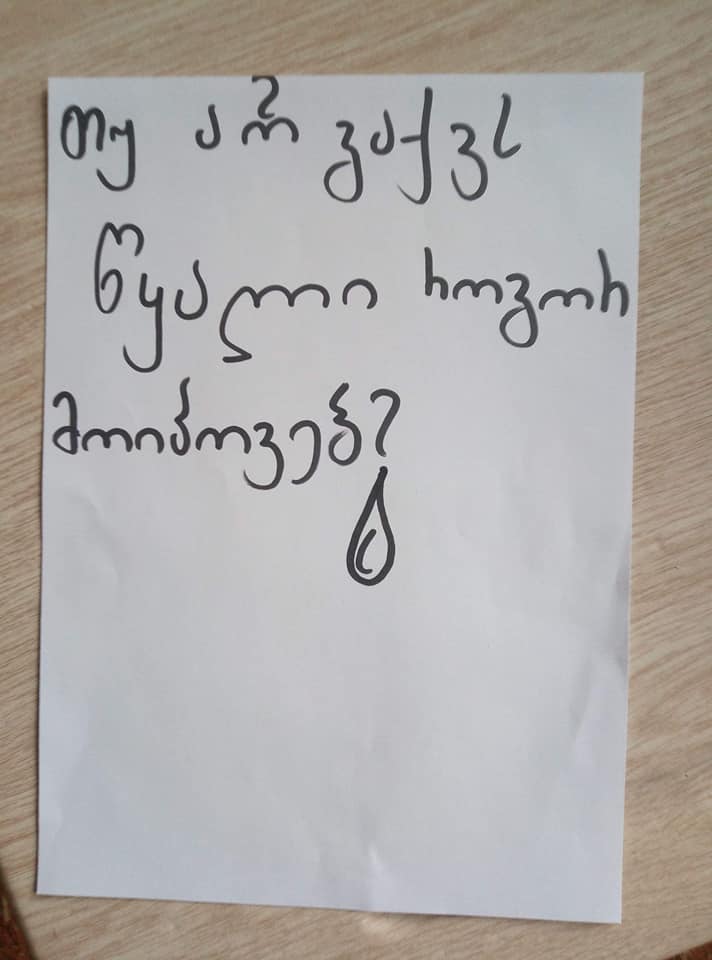 თუ არ გაქვს
წყალი როგორ
მოიპოვებ?